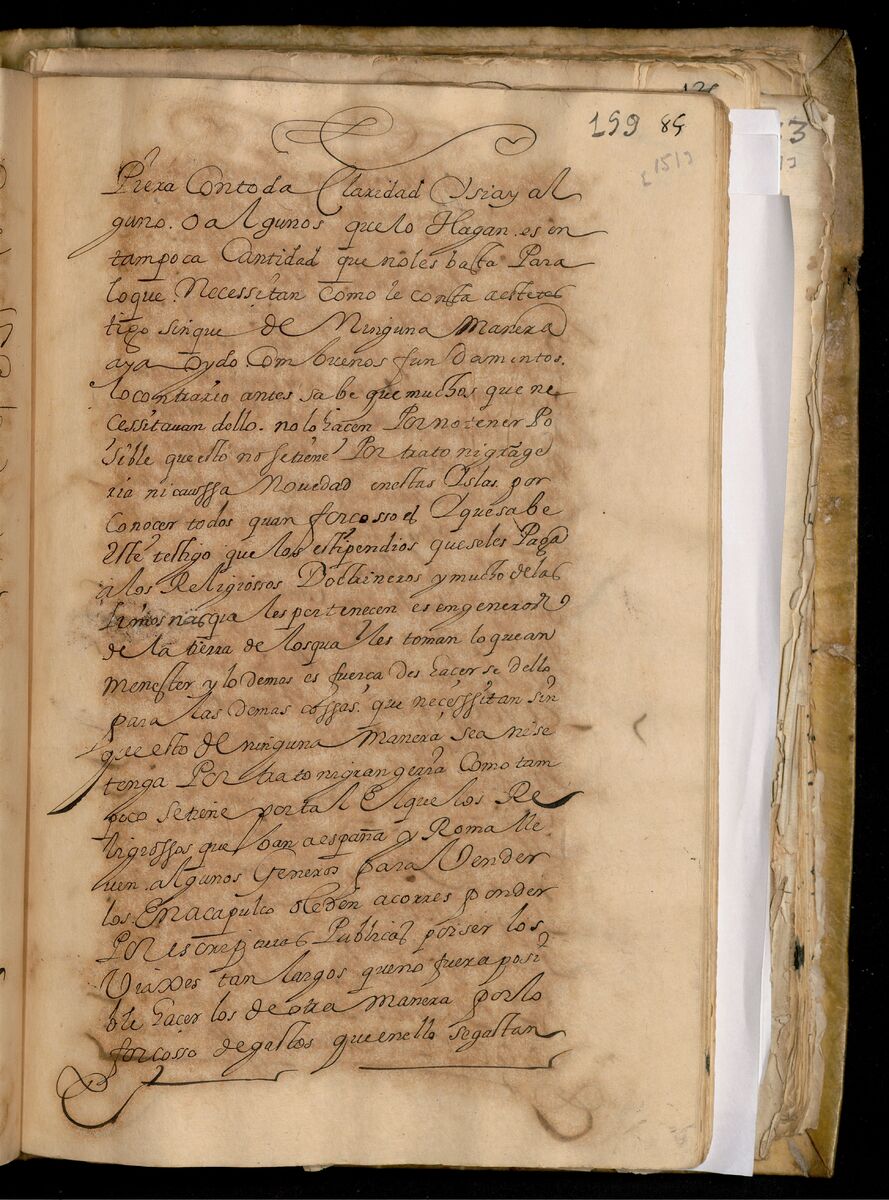 199 85
[151]
Piera Con toda Claridad Y si ay al
guno. o algunos que lo Hagan. es en
tam poca Cantidad que no les basta Para
lo que. Necessitan como le consta a este tes
tigo sin que de Ninguna Manera
aya oydo Con buenos fun damentos.
lo contrario antes sa be que muchos que ne
cessitauan dello. no lo hacen Por no tener Po
sible que esto no se tiene Por trato ni grage
ria ni caussa Nouedad en estas Yslas por
Conocer todos quan forcosso es Y que sa be
este testigo que los estipendios que seles Paga
a los Religiossos Doctrineros y mucho de las
limosnas que les pertenecen es en generos
de la tierra de los quales toman lo que an
menester y lo demas es fuerca des hacer se dello
para las demas cossas. que necessitan sin
que esto de ninguna manera sea ni se
tenga Por trato ni grangeria Como tam
poco se tiene por tal El que los Re
ligiossos que ban a españa y Roma lle
uen. algunos Generos para Vender
los En acapulco o leden a corres ponder
Por iscrip turas Publicas por ser los
Viaxes tan largos que no fuera posi
ble hacer los de otra manera por lo
forcosso de gastos que en ello se gastan